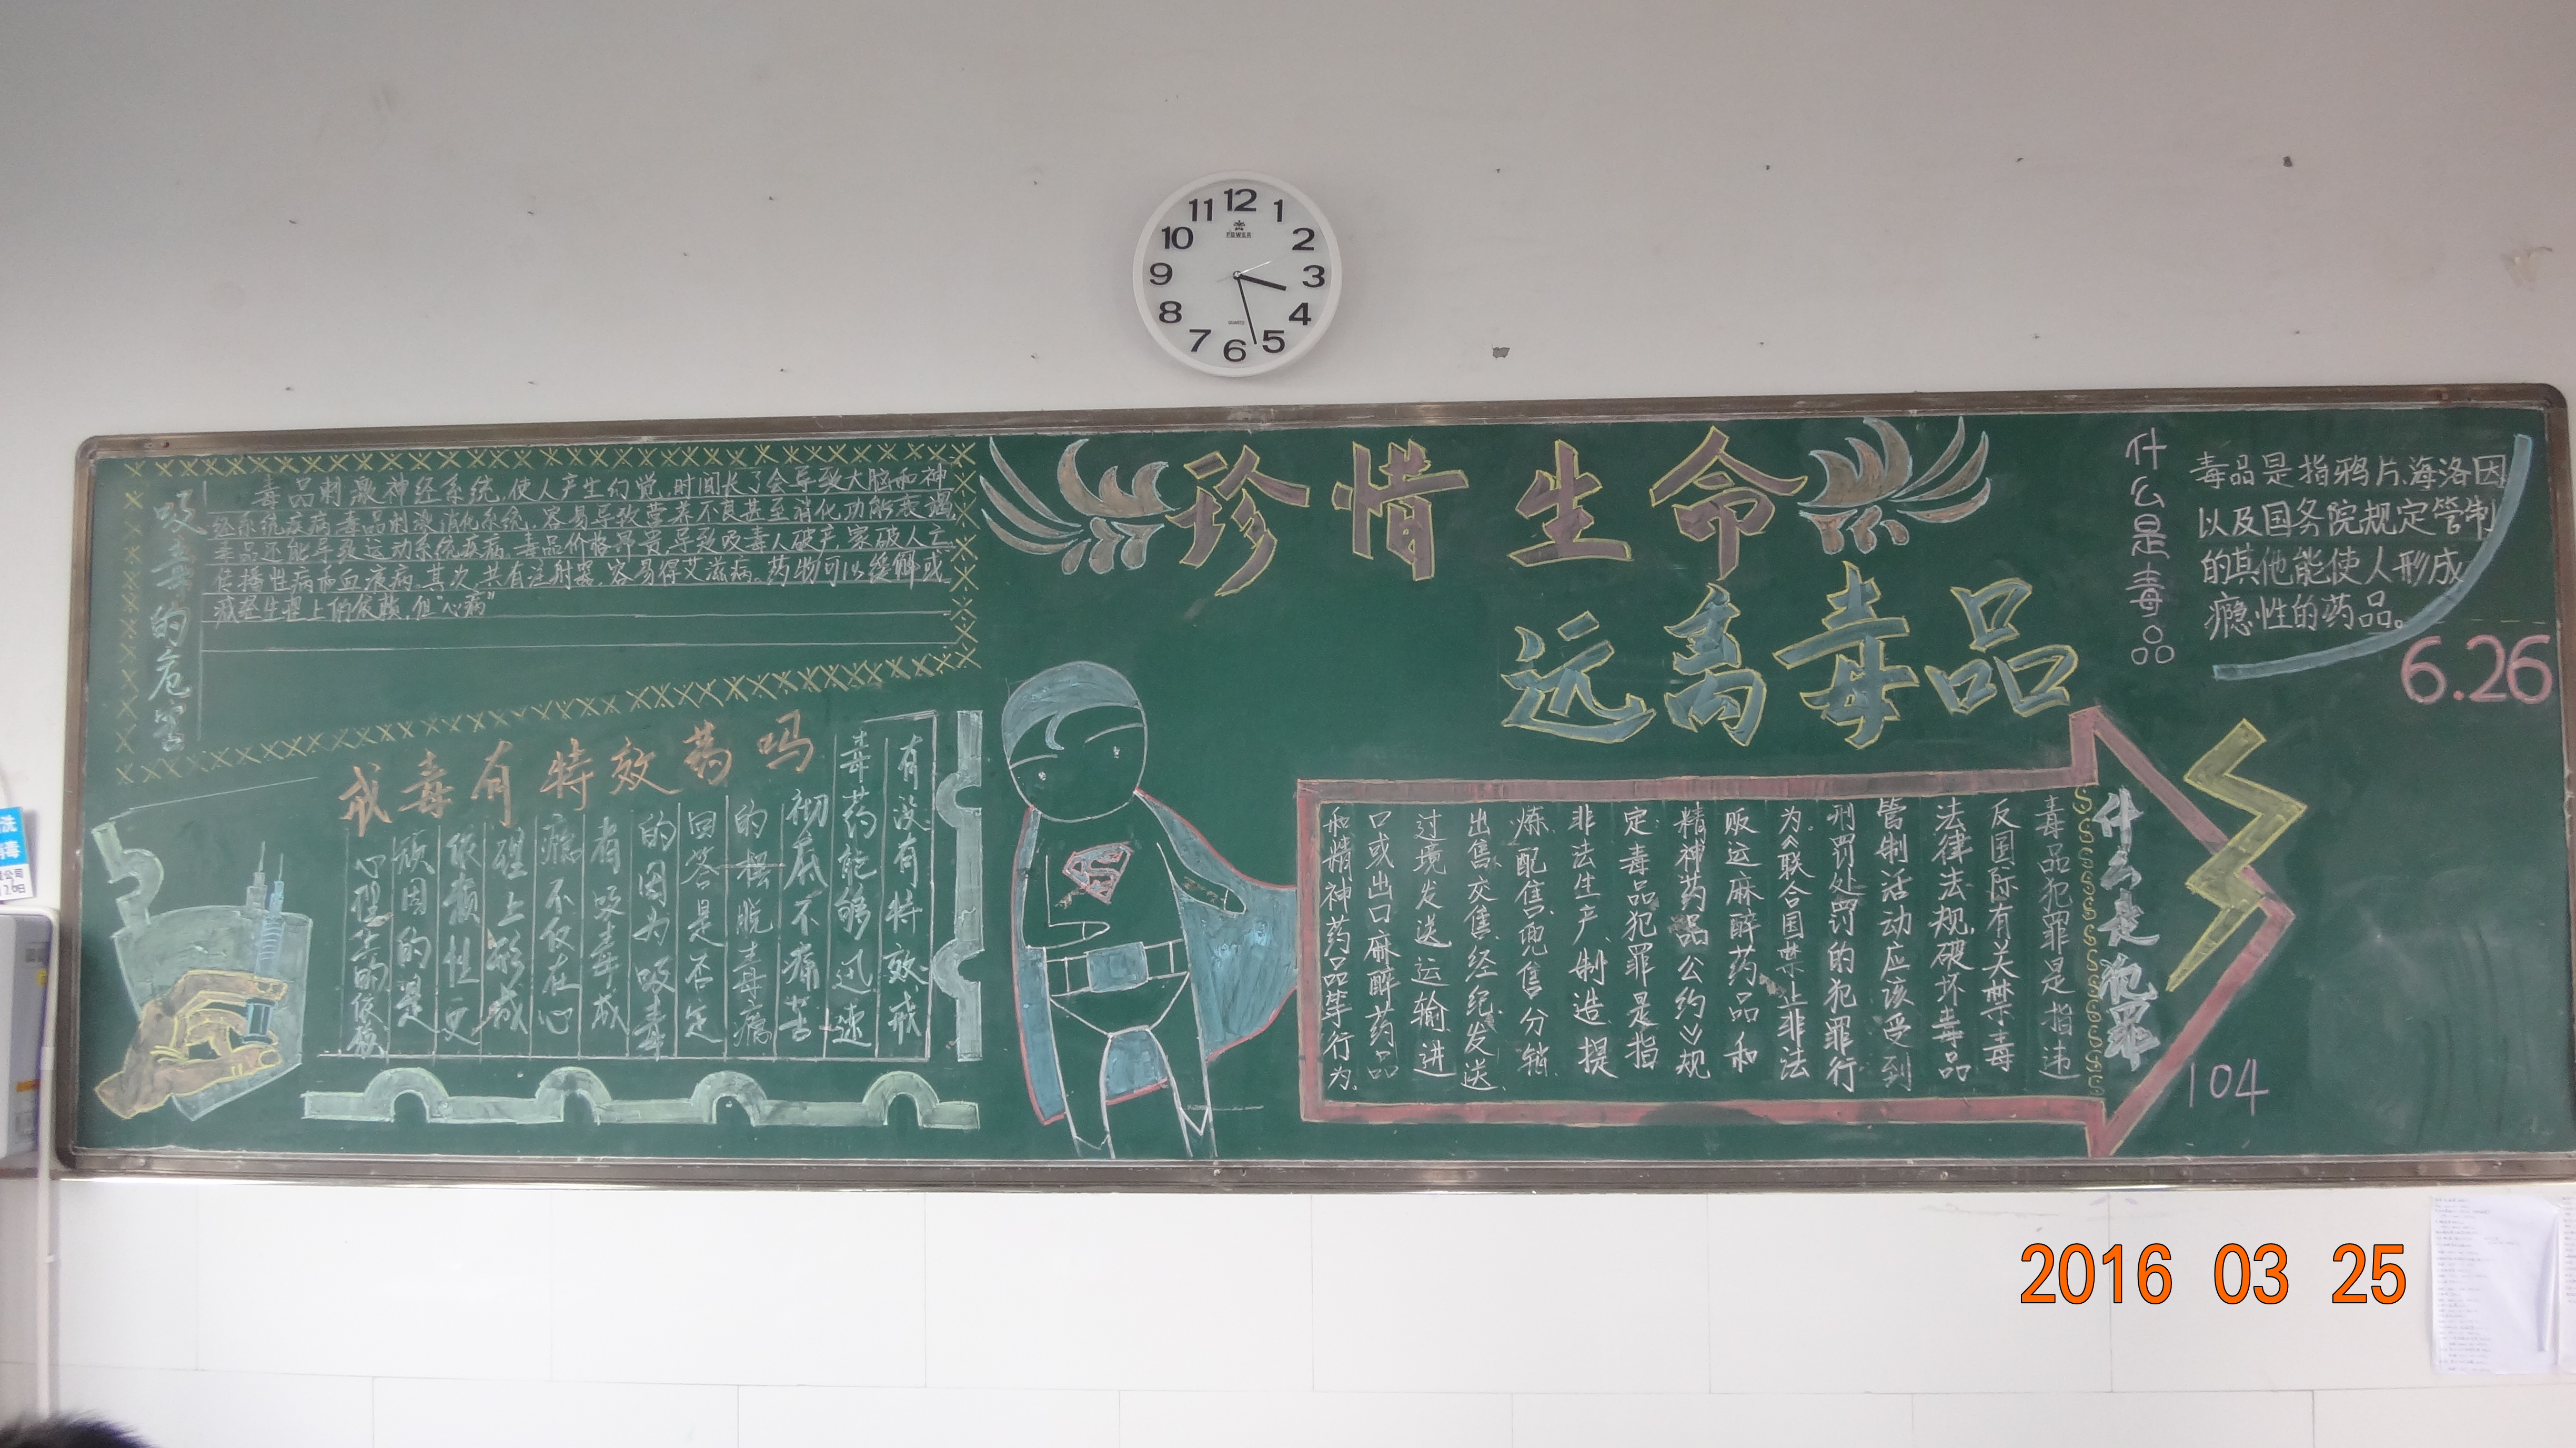 12
11
1
10
2
9
3
8
4
7
5
6
POWER
QUARTZ
珍惜生命
远离毒品
吸毒的危害
毒品刺激神经系统,使人产生幻觉,时间长了会导致大脑和神
经系统疾病,毒品刺激消化系统,容易导致营养不良甚至消化功能衰竭
毒品还能导致运动系统疾病,毒品价格昂贵,导致吸毒人破产,家破人亡
传播性病和血液病,其次,共有注射器,容易得艾滋病。药物可以缓解或
减轻生理上的依赖,但"心病"
戒毒有特效药吗
有没有特效戒
毒药能够迅速
彻底不痛苦
的摆脱毒瘾
回答是否定
的因为吸毒
者吸毒成
瘾不仅在心
理上形成
依赖性更
顽固的是
心理上的依赖
什么是毒品
毒品是指鸦片、海洛因
以及国务院规定管制
的其他能使人形成
瘾性的药品。
6.26
什么是犯罪
毒品犯罪是指违
反国际有关禁毒
法律法规,破坏毒品
管制活动应该受到
刑罚处罚的犯罪行
为。《联合国禁止非法
贩运麻醉药品和
精神药品公约》规
定:毒品犯罪是指
非法生产、制造、提
炼、配售、兜售、分销、
出售、交售、经纪、发送、
过境发送、运输、进
口或出口麻醉药品
和精神药品等行为。
104
洗
消毒
公司
2016 03 25